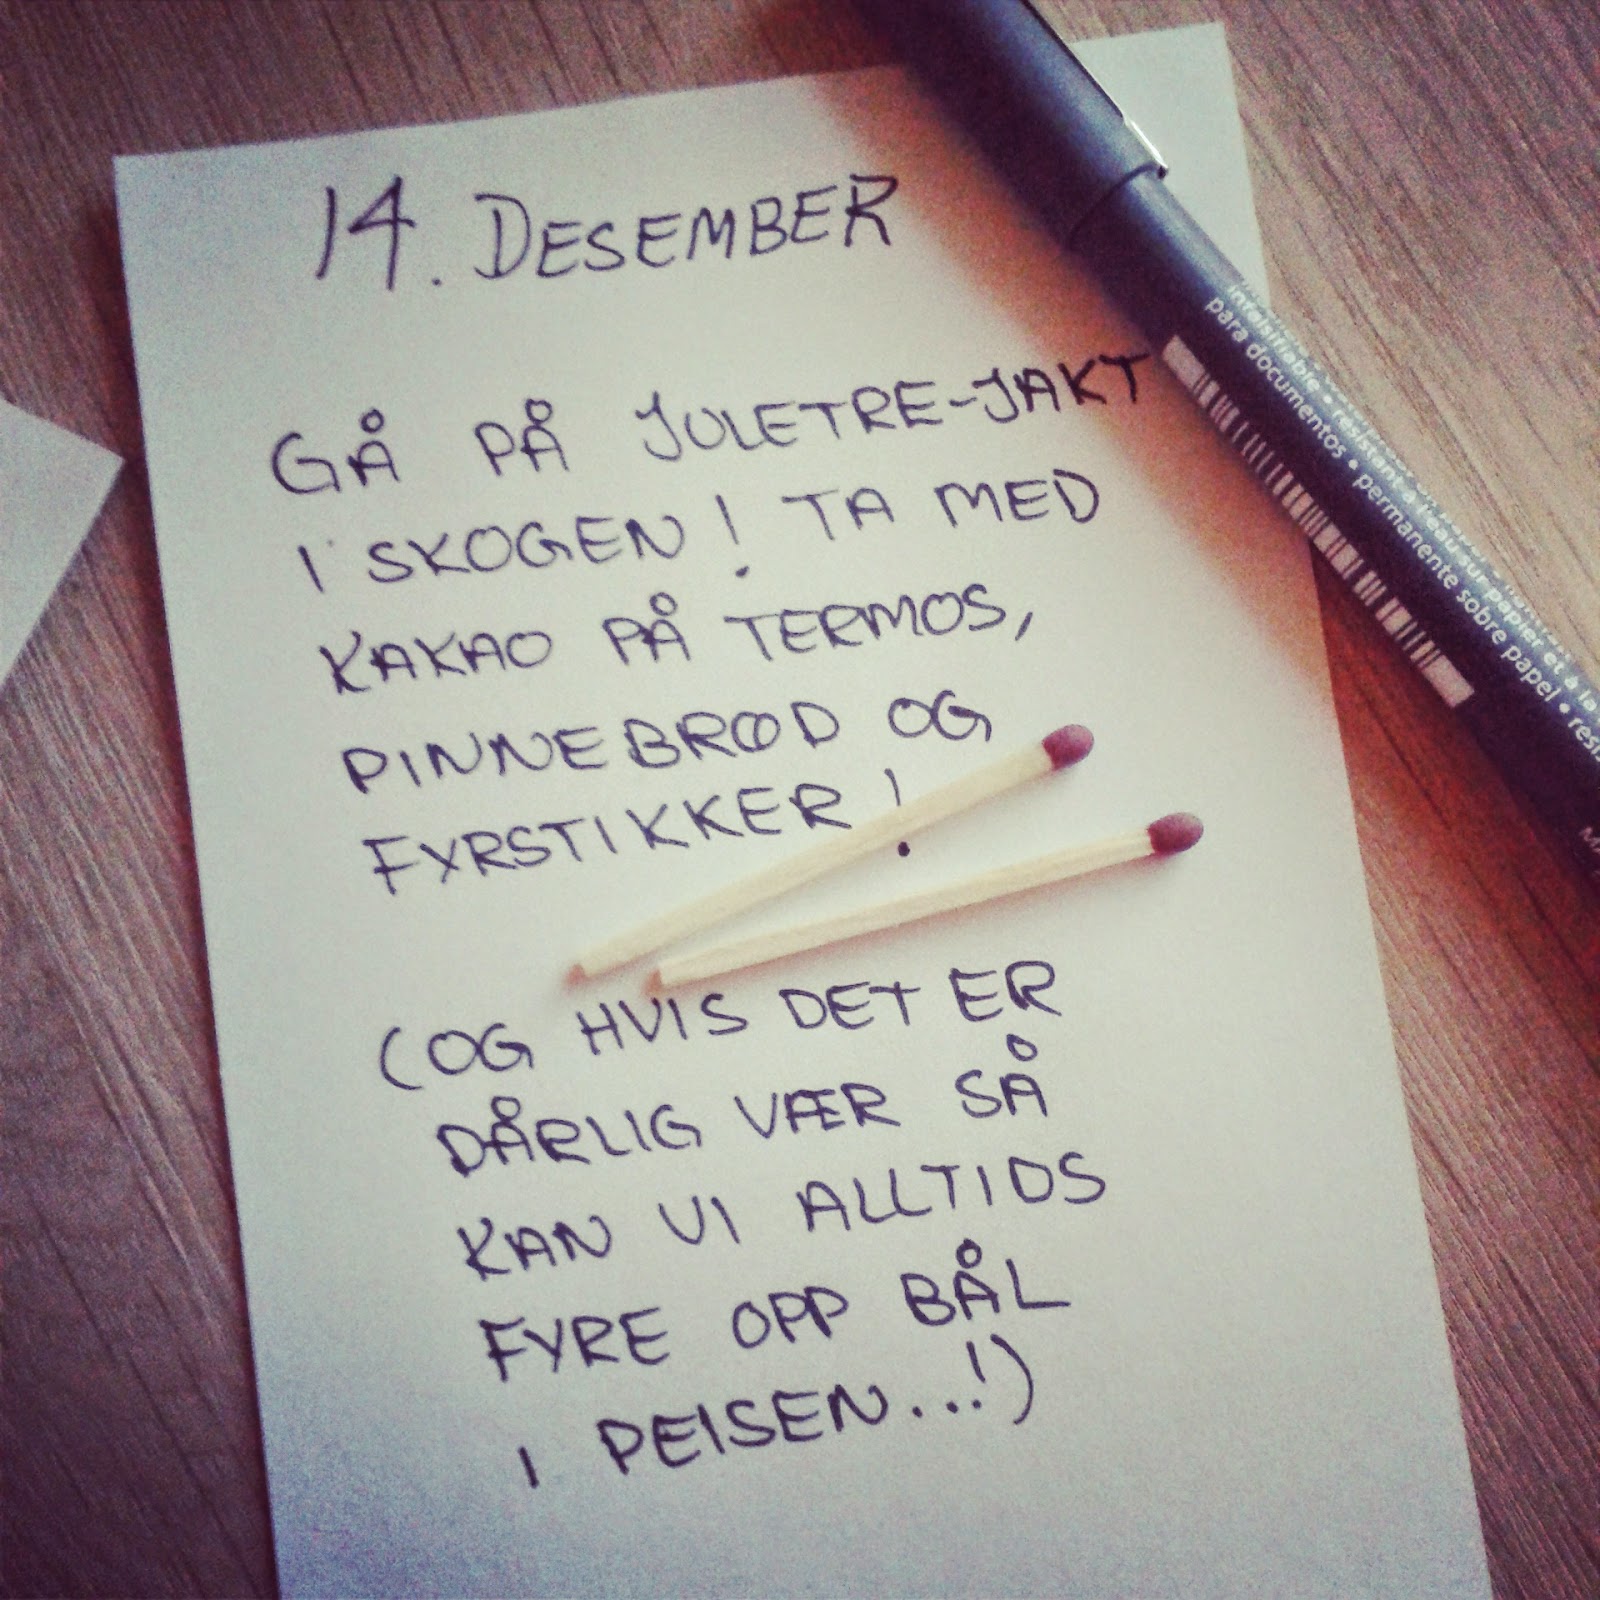 14. DESEMBER
GÅ PÅ JULETRE-JAKT
I SKOGEN! TA MED
KAKAO PÅ TERMOS,
PINNEBRØD OG
FYRSTIKKER!
(OG HVIS DET ER
DÅRLIG VÆR SÅ
KAN VI ALLTIDS
FYRE OPP BÅL
I PEISEN...!)
infalsifiable • résistant à l'eau sur papier et à la
para documentos • permanente sobre papel • resi